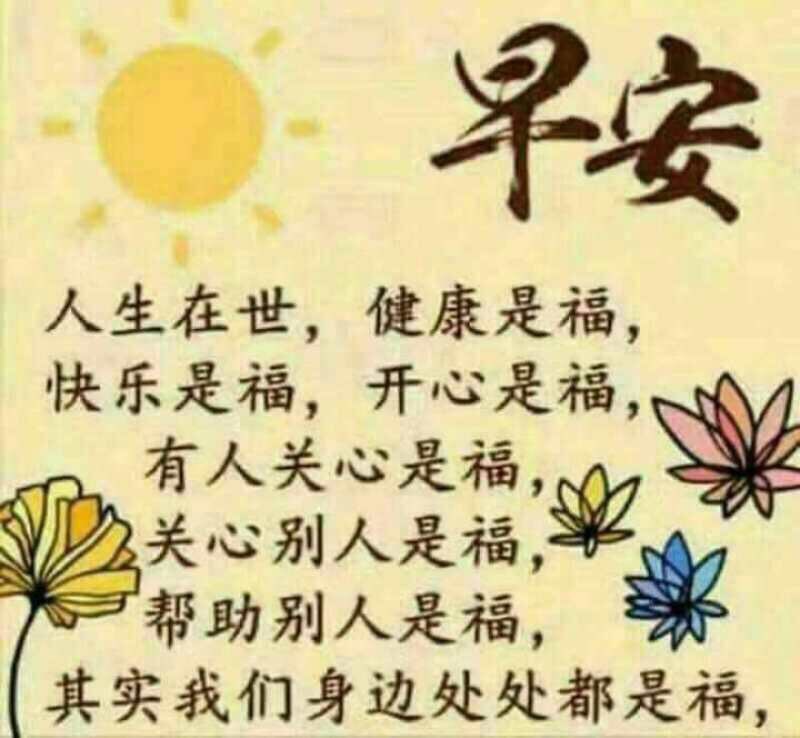 早安
人生在世，健康是福，
快乐是福，开心是福，
有人关心是福，
关心别人是福，
帮助别人是福，
其实我们身边处处都是福，